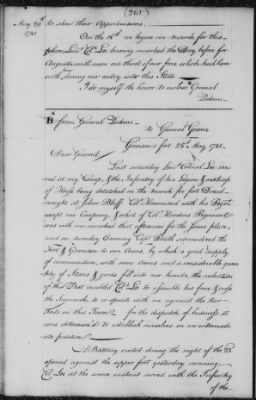 (261)
May 29th to shew their Apprehensions.
1781 On the 16th we began our march for this
place, Lieut. Col. Lee having marched the Day before for
Augusta with near one third of our force which had been
with during our entry into this State.
I do myself the honor to inclose General
Pickens
From General Pickens
to General Greene
Grierson's fort 25th May 1781.
Dear General
Last saturday Lieut Colonel Lee arrived
at my Camp, & the Infantry of his Legion & a troop
of Horse being detached on the march for fort Dreadnought
at Silver Bluff Col. Hammond with his Regt.
except one Company, & what of Col. Hardens Regiment
was with me marched that afternoon for the same place,
and on sunday Evening Capt. Rudulph surrounded the
Fort & Garrison to our Hands, by which a good supply
of ammunition, with some arms and a considerable quantity
of Stores & goods fell into our hands, the reduction
of this Post enabled Col. Lee to assemble his force & cross
the Savannah to co-operate with me against the two
Forts in this Town. for the dispatch of business it
was determined to establish ourselves in an intermediate
position
A Battery erected during the night of the 23d
opened against the upper fort yesterday morning
Col. Lee at the same instant moved with the Infantry
of the